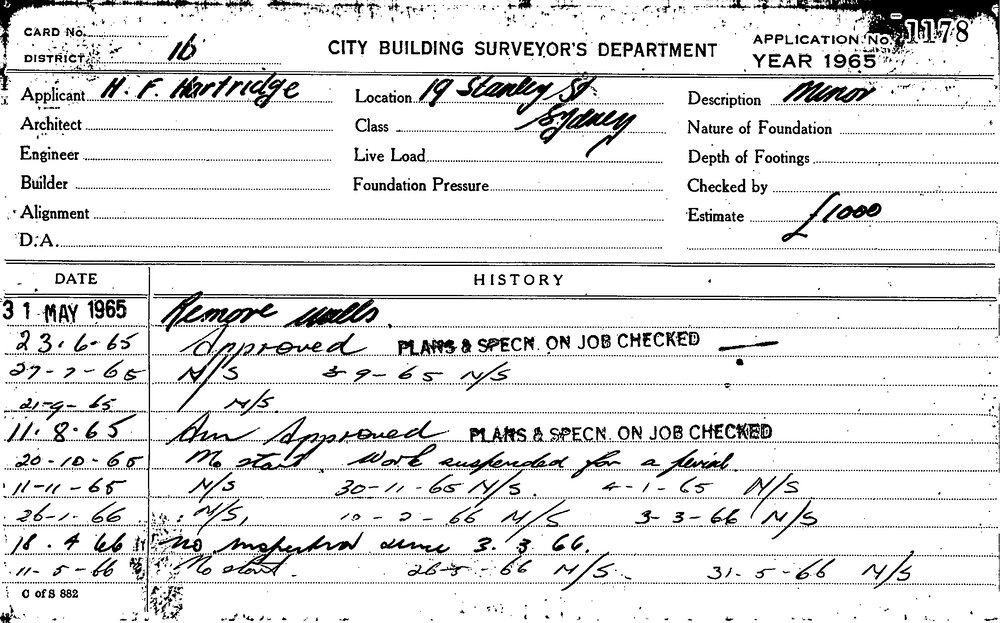 CARD No.
DISTRICT 1b
CITY BUILDING SURVEYOR'S DEPARTMENT
APPLICATION No. 1178
YEAR 1965
Applicant H. F. Hartridge Location 19 Stanley St Sydney Description Minor
Architect Class Nature of Foundation
Engineer Live Load Depth of Footings
Builder Foundation Pressure Checked by
Alignment Estimate £1000
D.A.
DATE HISTORY
31 MAY 1965 Remove walls.
23.6.65 Approved PLANS & SPECN. ON JOB CHECKED —
27-7-65 N/S 3-9-65 N/S
21-9-65 N/S.
11.8.65 Am Approved PLANS & SPECN. ON JOB CHECKED
20-10-65 No start. Work suspended for a period.
11-11-65 N/S 30-11-65 N/S. 4-1-65 N/S
26-1-66 N/S, 10-2-66 N/S 3-3-66 N/S
18.4 66 no inspection since 3. 3 66.
11-5-66 No start. 26-5-66 N/S. 31-5-66 N/S
C of S 882